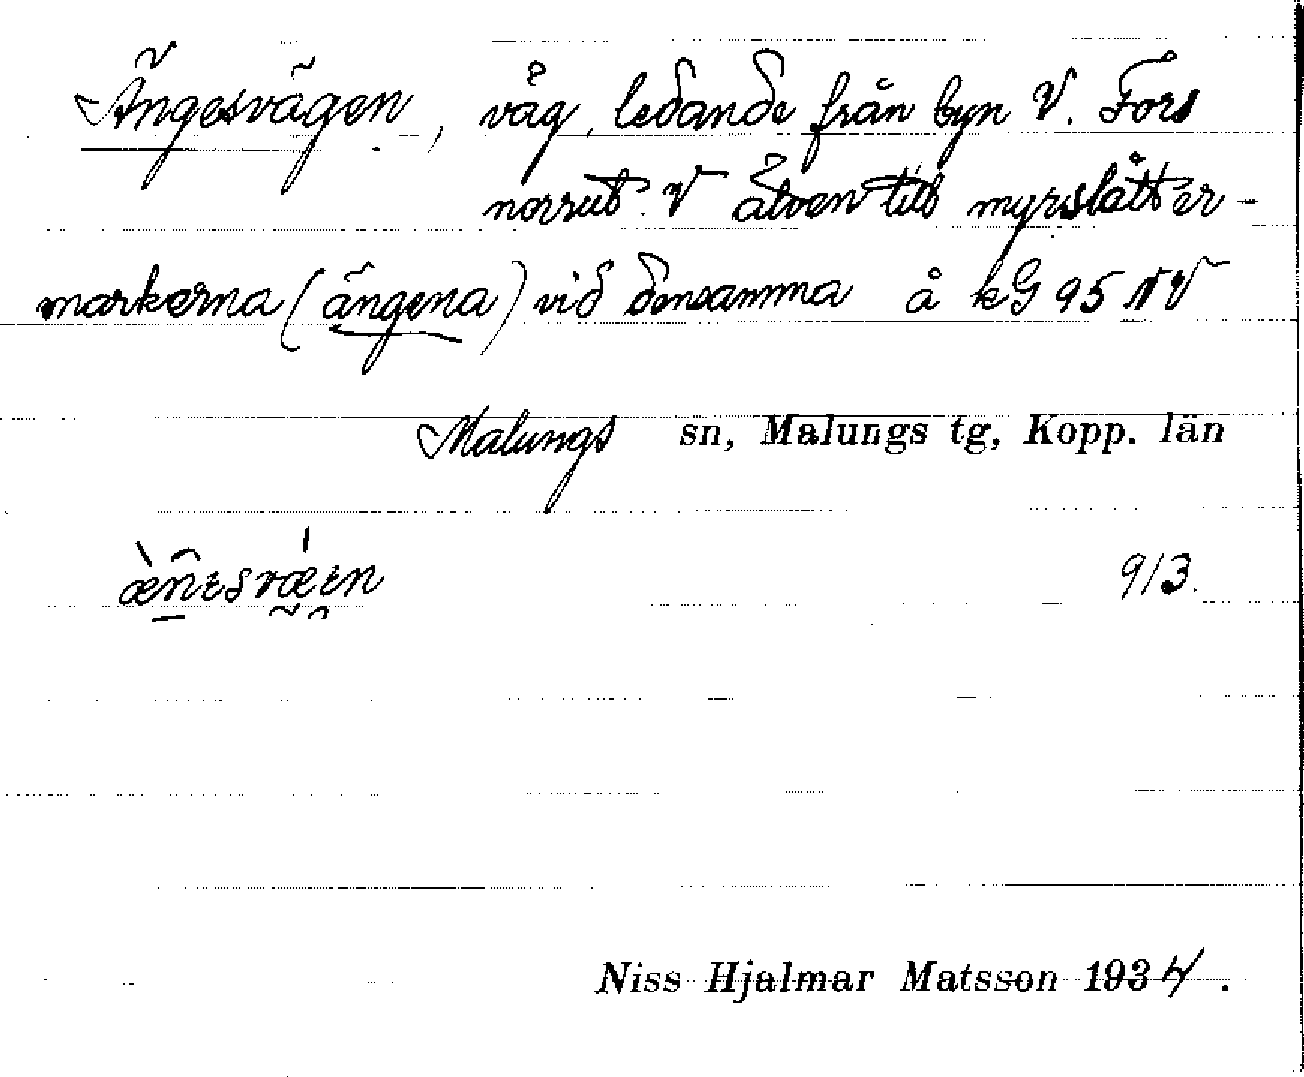 Ängesvägen, väg, ledande från byn V. Fors
norrut V älven till myrslåtter-
markerna (ängena) vid densamma å kG 95 NV
Malungs sn, Malungs tg, Kopp. län
913.
Niss Hjalmar Matsson 1934.